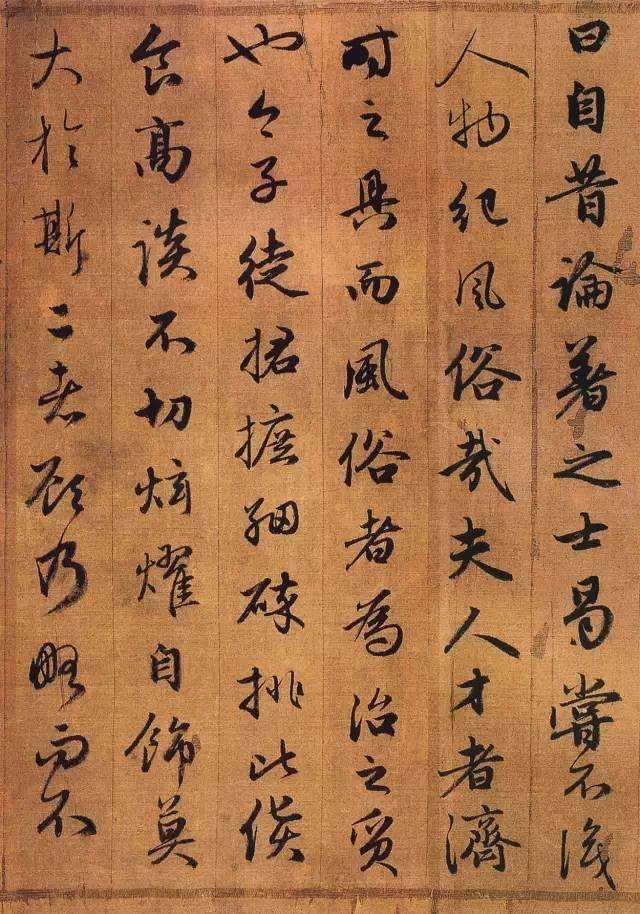 曰自昔論著之士曷嘗不議
人物紀風俗哉夫人才者濟
時之具而風俗者為治之質
也今子徒捃摭細碎排比貨
食高談不切炫耀自飾莫
大於斯二者顧乃略而不